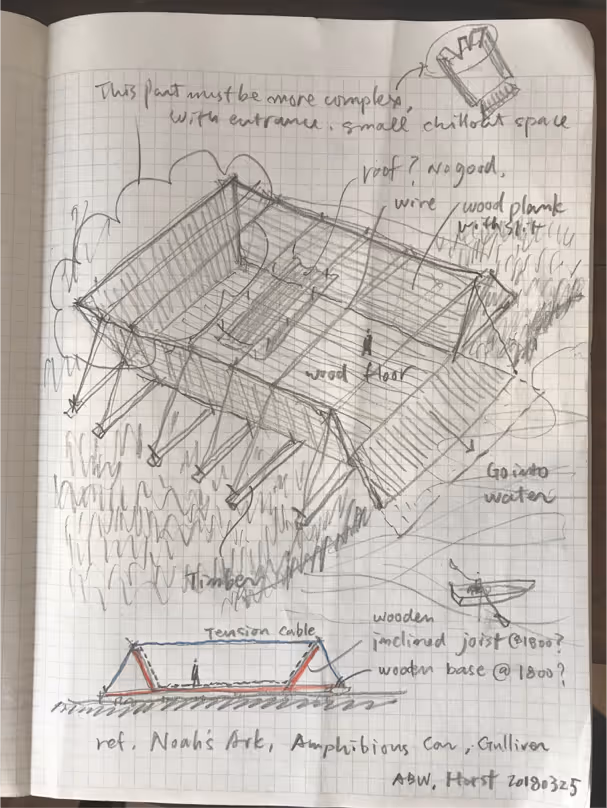 This part must be more complex,
with entrance. small chillout space
roof? No good.
wire
wood plank
with slit
wood floor
Go into
water
Timber
Tension cable
wooden
inclined joist @1800?
wooden base @1800?
ref. Noah's Ark, Amphibious Car, Gulliver
ABW, Horst 20180325